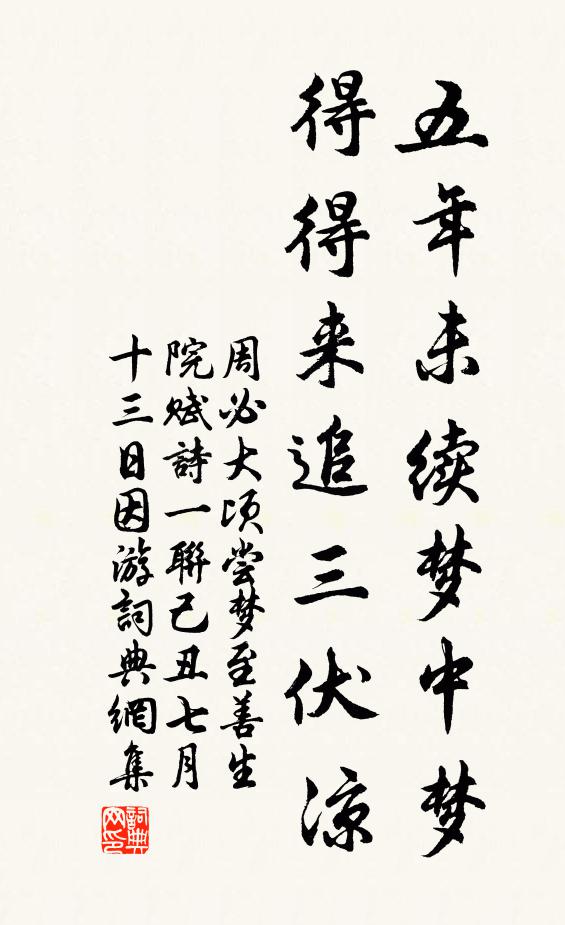 五年未续梦中梦
得得来追三伏凉
周必大顷尝梦至善生
院赋詩一聯己丑七月
十三日因游詞典網集
詞典
网印